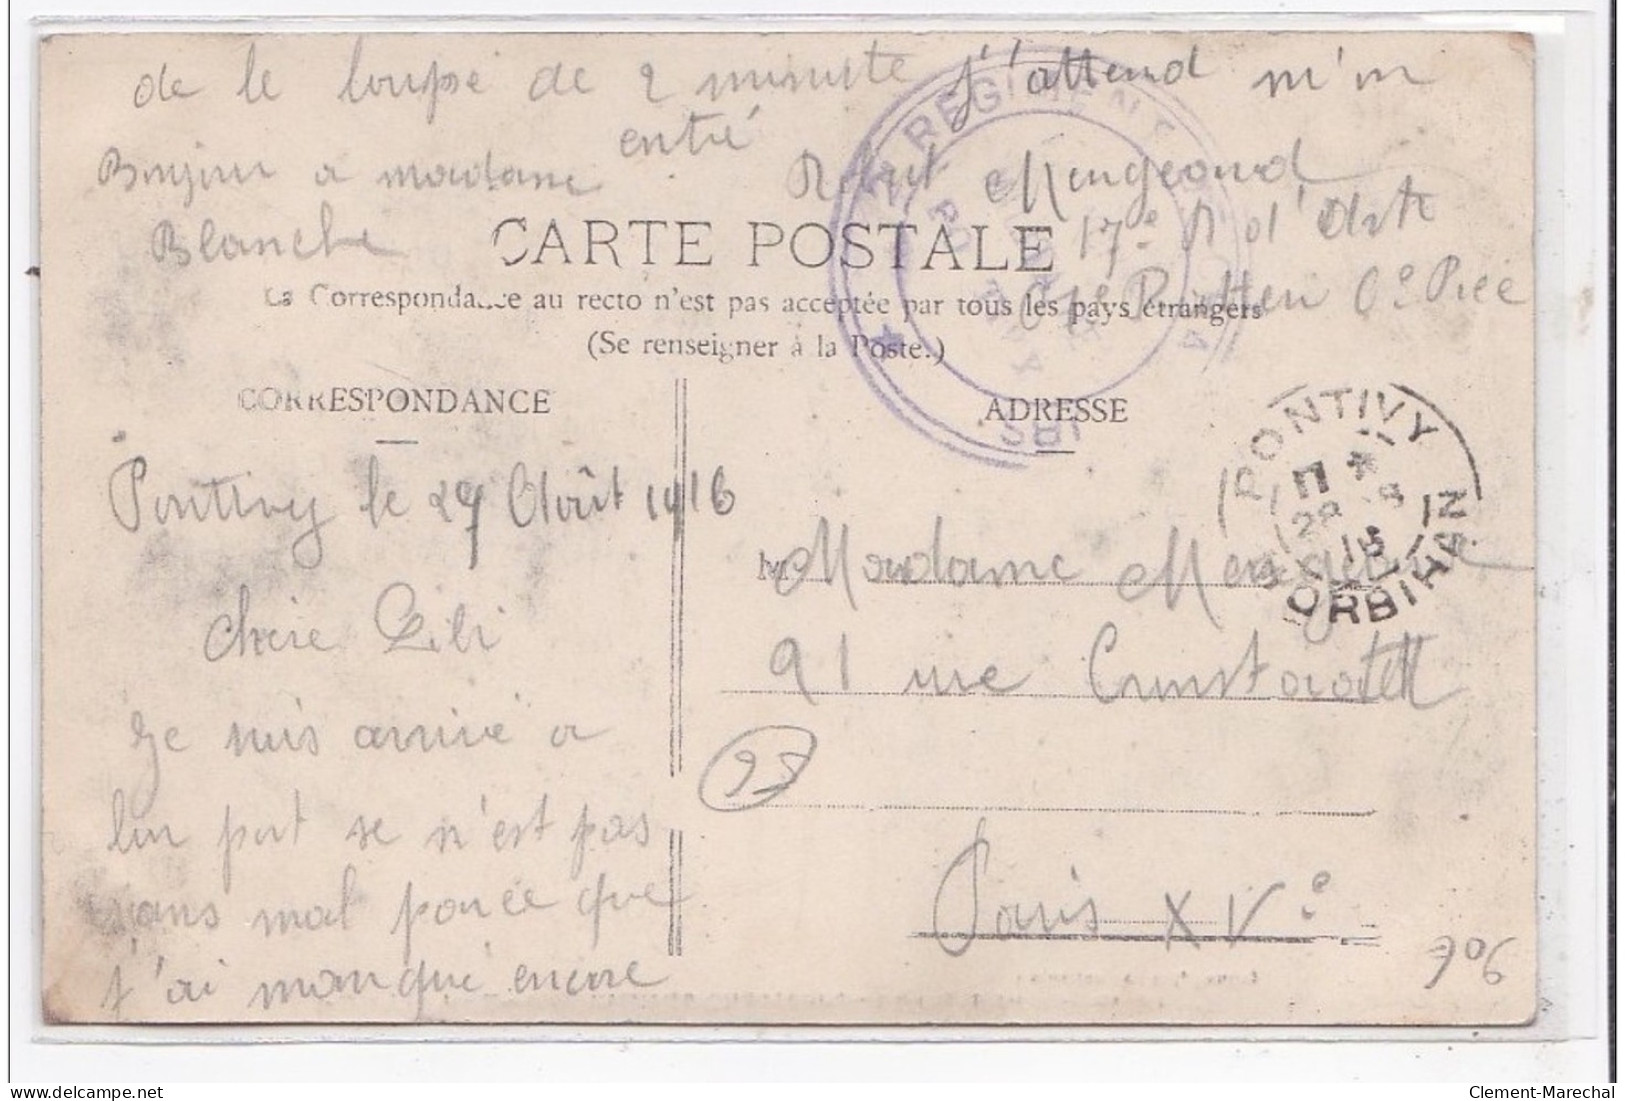 de le loupé de 2 minute j'attend m'm
entré
Bonjour a madame
Blanche
17e R d'Arti
CARTE POSTALE
La Correspondance au recto n'est pas acceptée par tous les pays étrangers
(Se renseigner à la Poste.)
REGIMENT
CORRESPONDANCE
ADRESSE
PONTIVY
MORBIHAN
Pontivy le 27 Août 1916
chere Lili
Je suis arrivé a
bon port se n'est pas
sans mal porce que
j'ai manqué encore
M
Madame
91 rue
Paris XVe
95
906
delcampe.net
Clement-Marechal